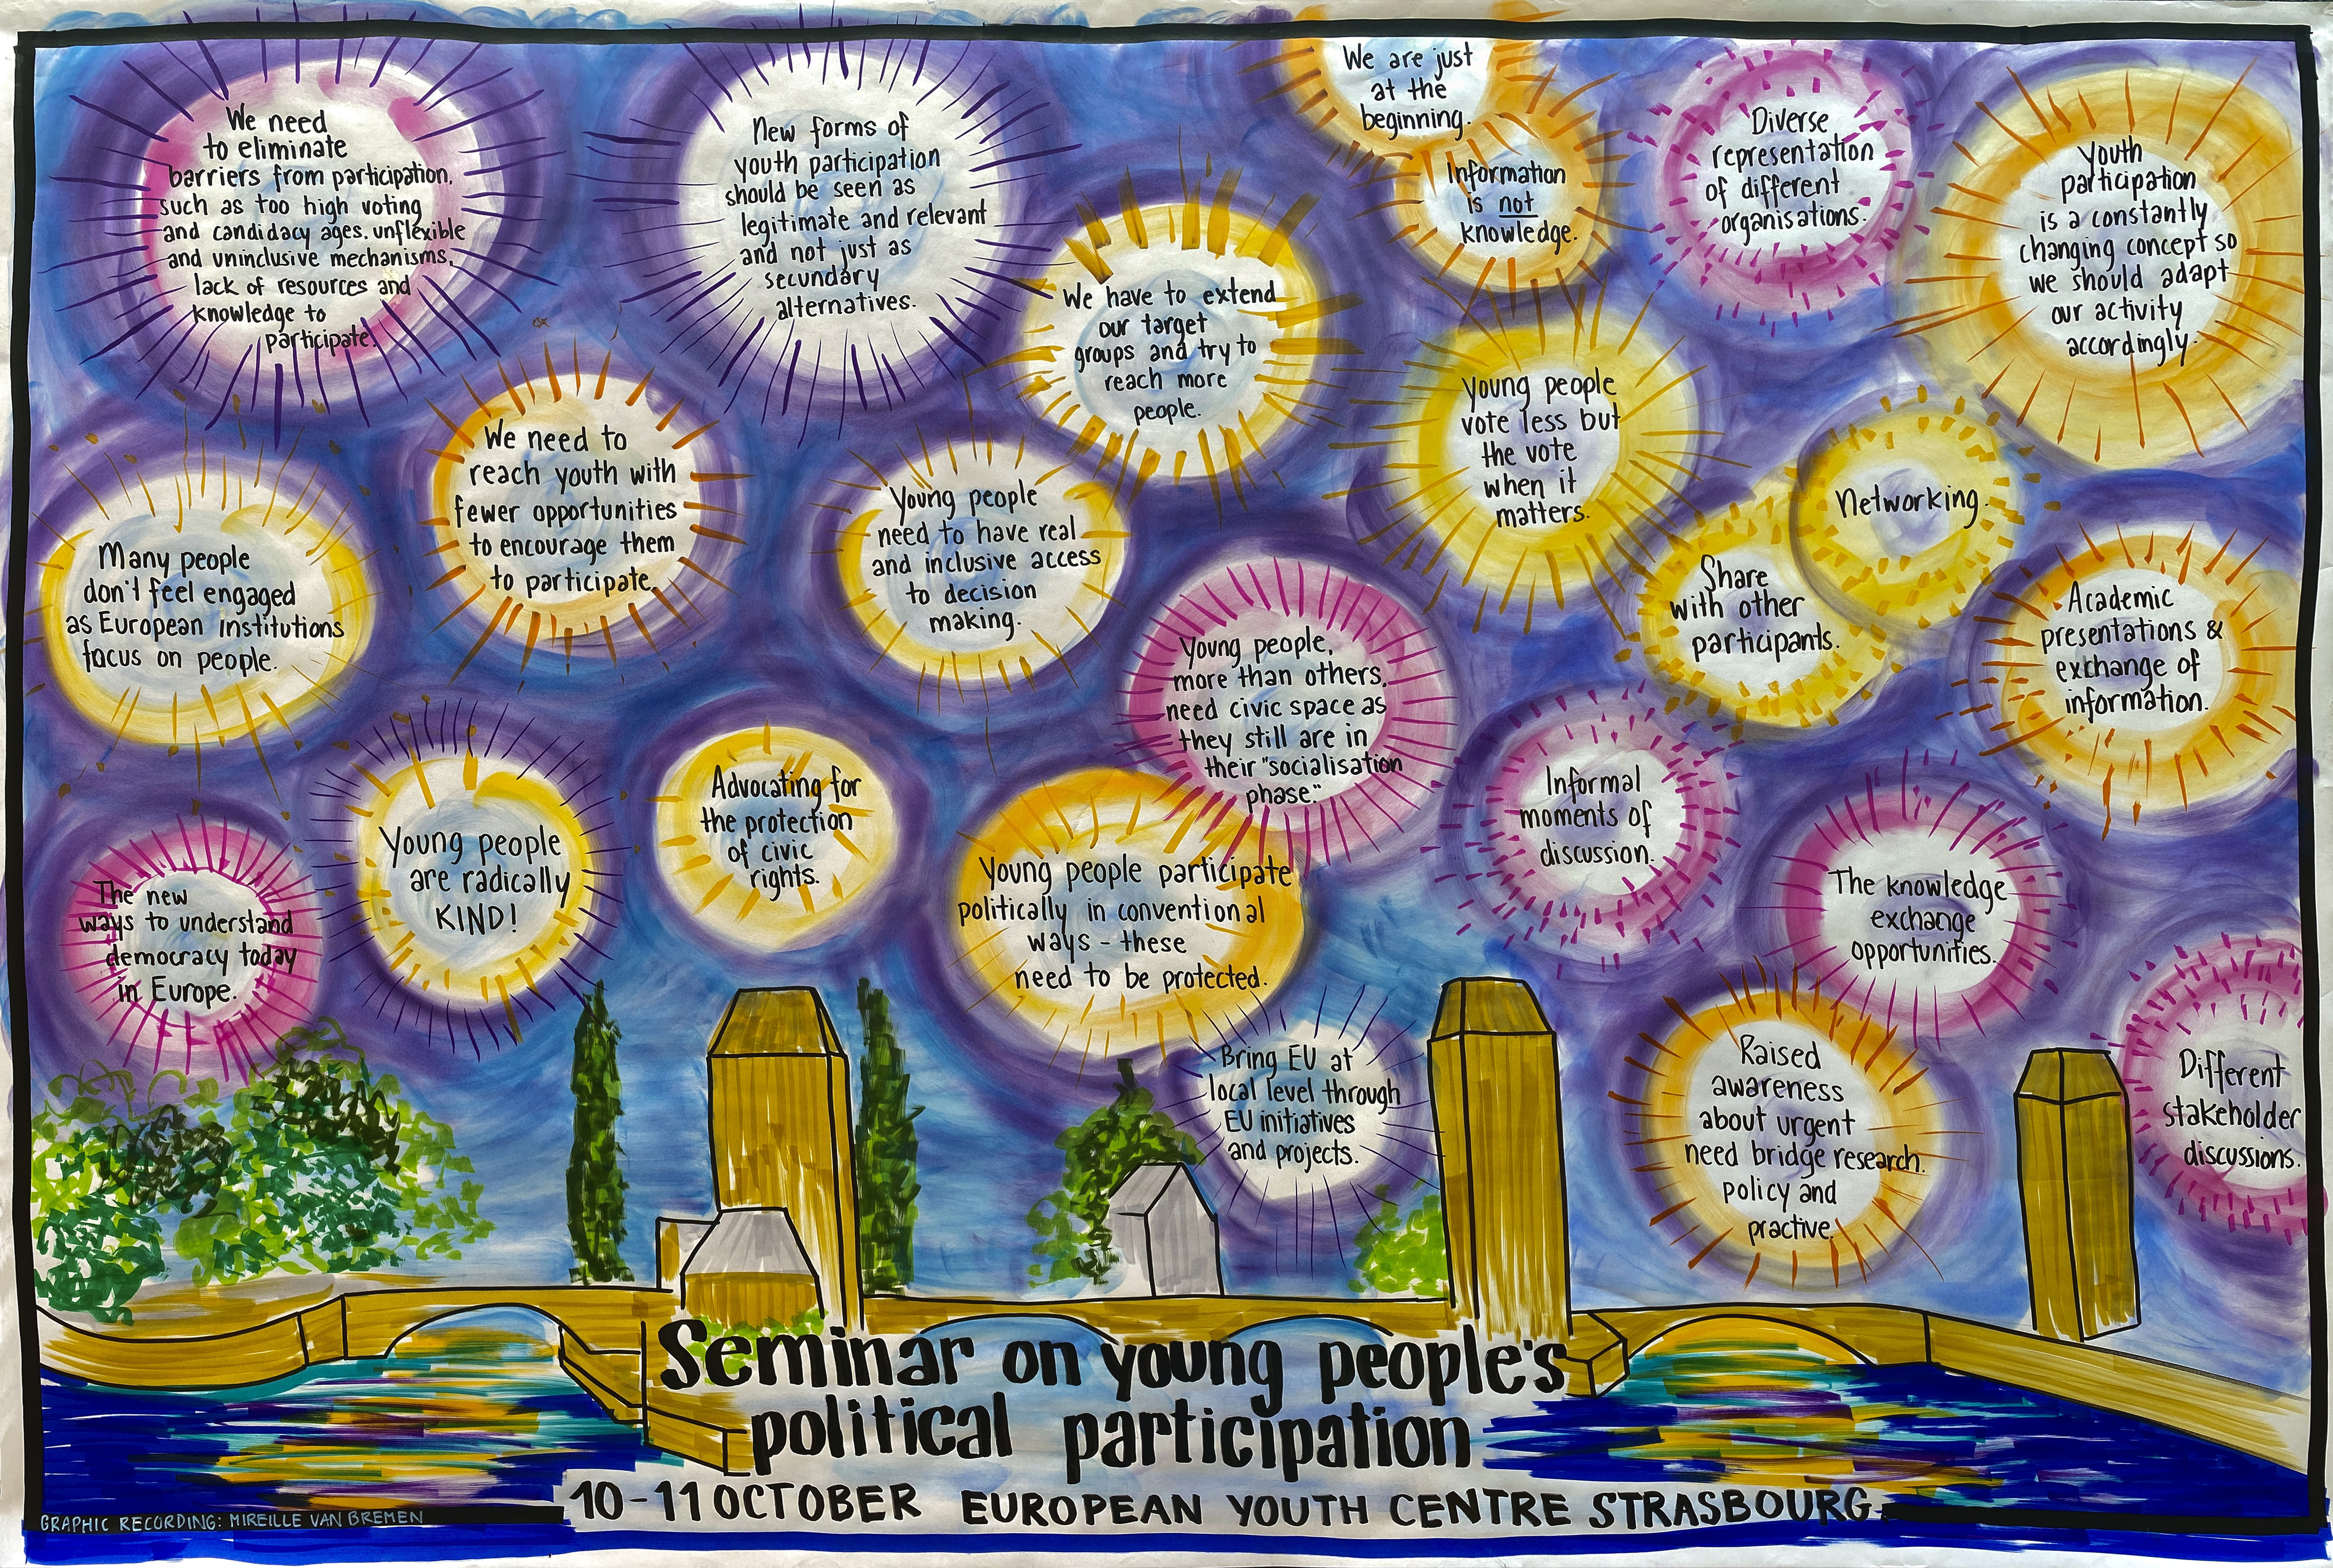 We need
to eliminate
barriers from participation,
such as too high voting
and candidacy ages, unflexible
and uninclusive mechanisms,
lack of resources and
knowledge to
participate.
New forms of
youth participation
should be seen as
legitimate and relevant
and not just as
secundary
alternatives.
We are just
at the
beginning.
Information
is not
knowledge.
Diverse
representation
of different
organisations.
Youth
participation
is a constantly
changing concept so
we should adapt
our activity
accordingly.
We have to extend
our target
groups and try to
reach more
people.
Young people
vote less but
the vote
when it
matters.
Networking.
Share
with other
participants.
Many people
don't feel engaged
as European institutions
focus on people.
We need to
reach youth with
fewer opportunities
to encourage them
to participate.
Young people
need to have real
and inclusive access
to decision
making.
Young people,
more than others,
need civic space as
they still are in
their "socialisation
phase."
Academic
presentations &
exchange of
information.
The new
ways to understand
democracy today
in Europe.
Young people
are radically
KIND!
Advocating for
the protection
of civic
rights.
Young people participate
politically in conventional
ways - these
need to be protected.
Informal
moments of
discussion.
The knowledge
exchange
opportunities.
Bring EU at
local level through
EU initiatives
and projects.
Raised
awareness
about urgent
need bridge research,
policy and
practive.
Different
stakeholder
discussions.
Seminar on young people's
political participation
10-11 OCTOBER EUROPEAN YOUTH CENTRE STRASBOURG
GRAPHIC RECORDING: MIREILLE VAN BREMEN